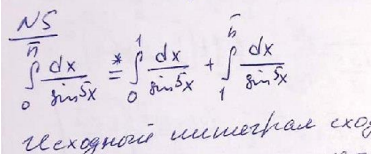 N5
∫₀^π dx/sin⁵x *= ∫₀¹ dx/sin⁵x + ∫₁^π dx/sin⁵x
Исходный интеграл